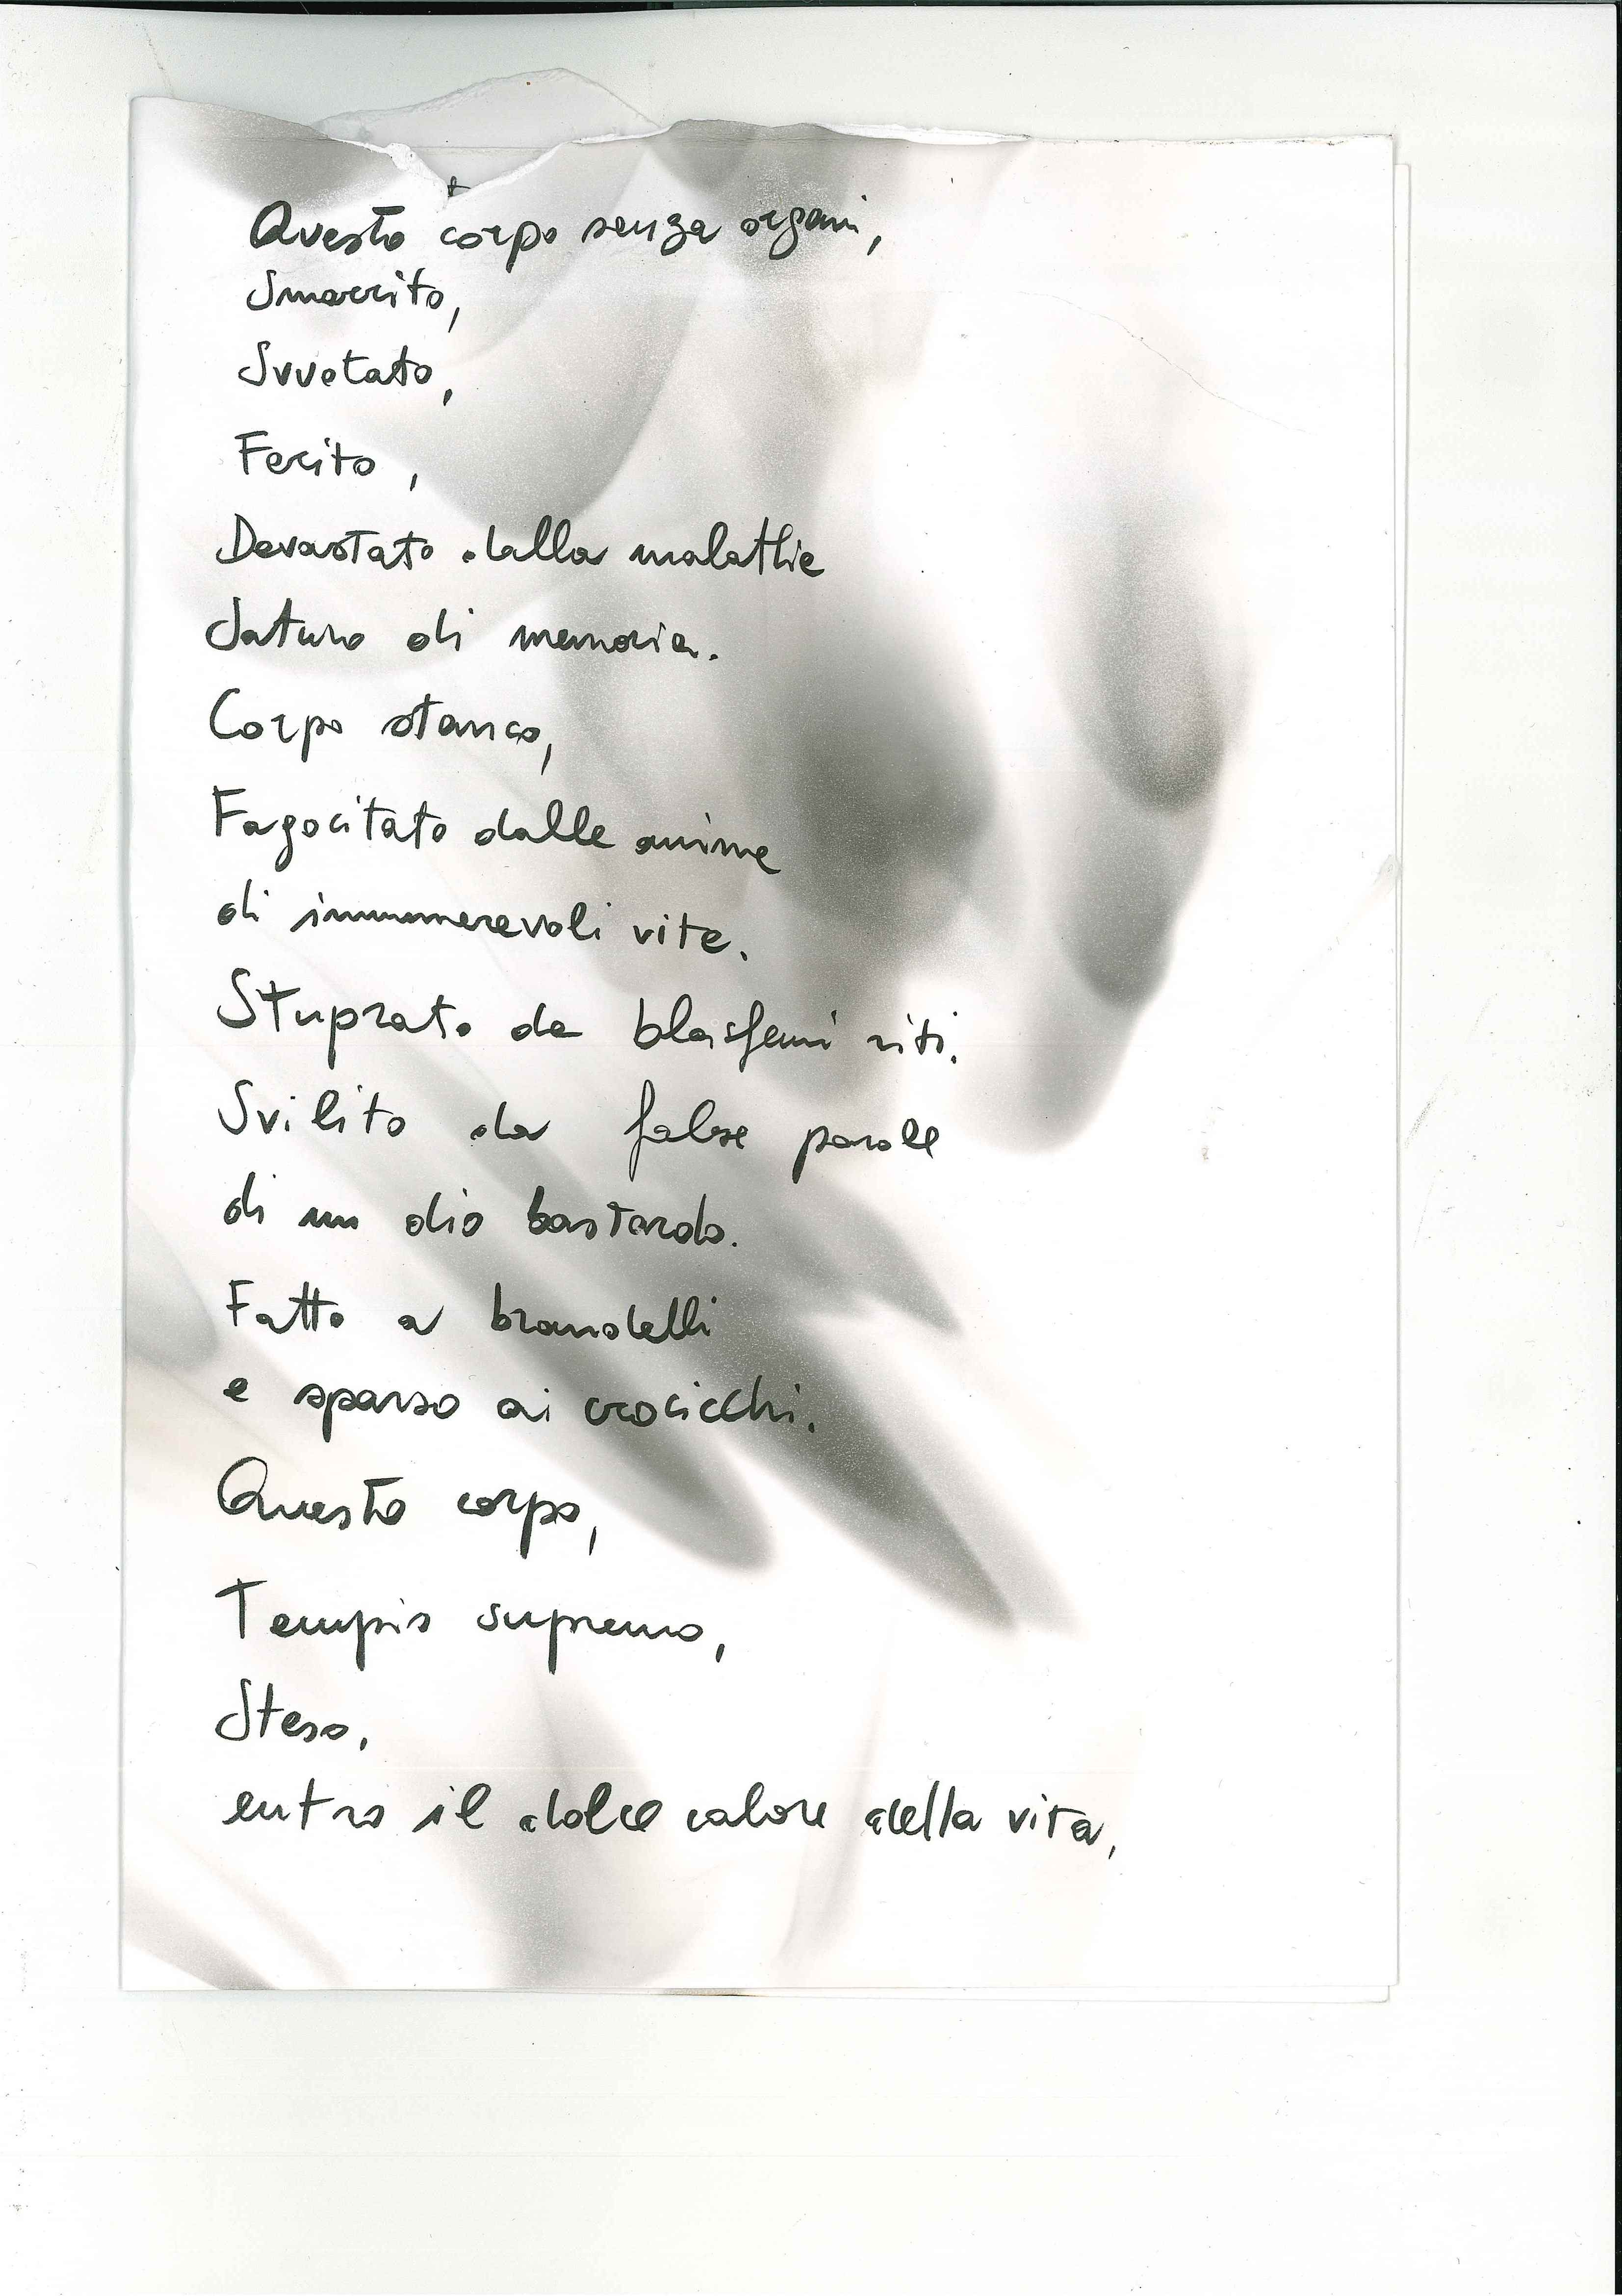 Questo corpo senza organi,
Smarrito,
Svuotato,
Ferito,
Devastato dalla malattie
Saturo di memoria.
Corpo stanco,
Fagocitato dalle anime
di innumerevoli vite.
Stuprato da blasfemi riti.
Svilito da false parole
di un dio bastardo.
Fatto a brandelli
e sparso ai crocicchi.
Questo corpo,
Tempio supremo,
Steso,
entro il dolce calore della vita,